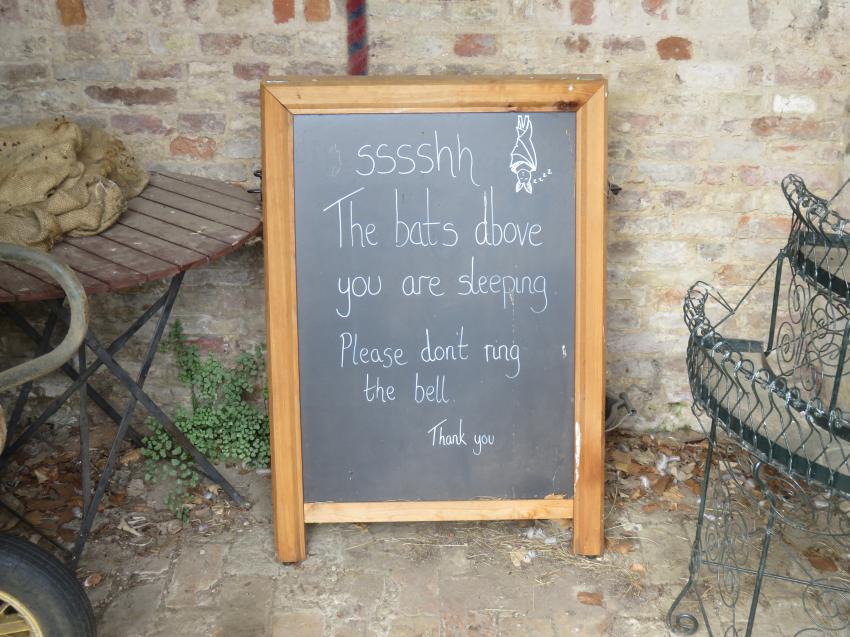 sssshh
zzzz
The bats above
you are sleeping
Please don't ring
the bell.
Thank you